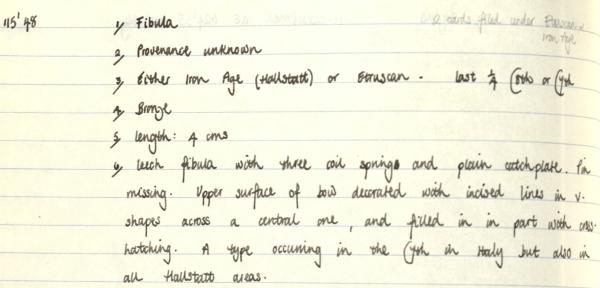 2 cards filed under Etruscan &
Iron Age
115' 48
1, Fibula
2, Provenance unknown
3, Either Iron Age (Hallstatt) or Etruscan. last ¼ C8th or C7th
4, Bronze
5, length: 4 cms
6, leech fibula with three coil springs and plain catchplate. Pin
missing. Upper surface of bow decorated with incised lines in v.
shapes across a central one, and filled in in part with cross-
hatching. A type occuring in the C7th in Italy but also in
all Hallstatt areas.